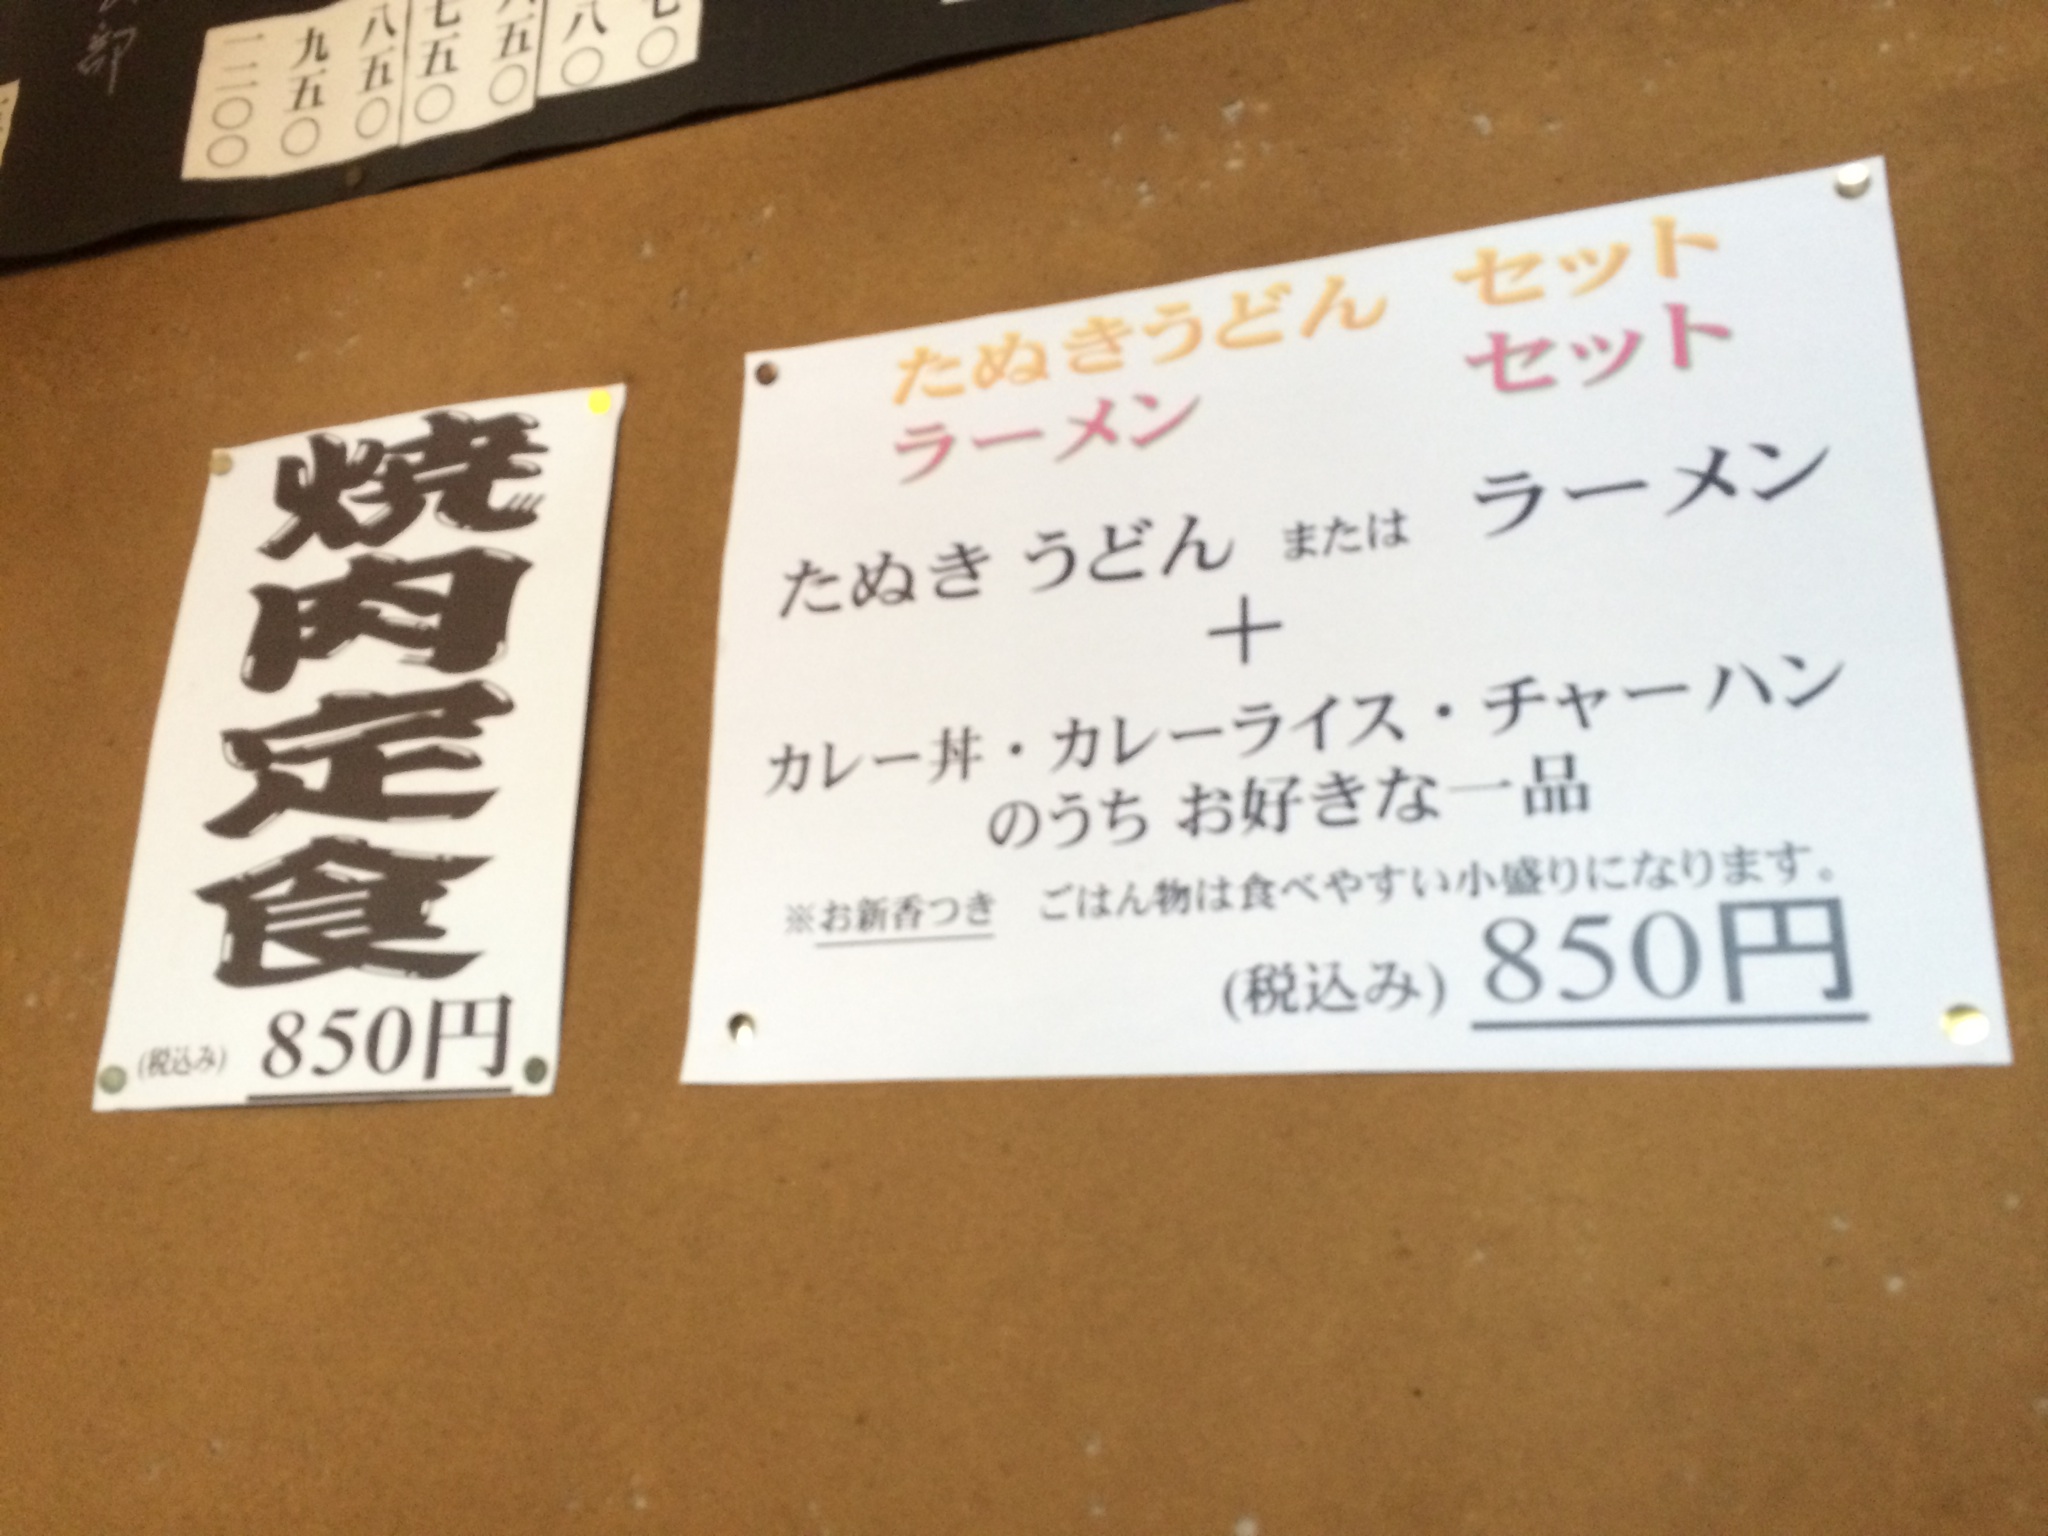 部
七〇
八〇
五〇
七五〇
八五〇
九五〇
一二〇〇
焼肉定食
(税込み) 850円
たぬきうどん セット
ラーメン セット
たぬき うどん または ラーメン
+
カレー丼・カレーライス・チャーハン
のうち お好きな一品
※お新香つき ごはん物は食べやすい小盛りになります。
(税込み) 850円